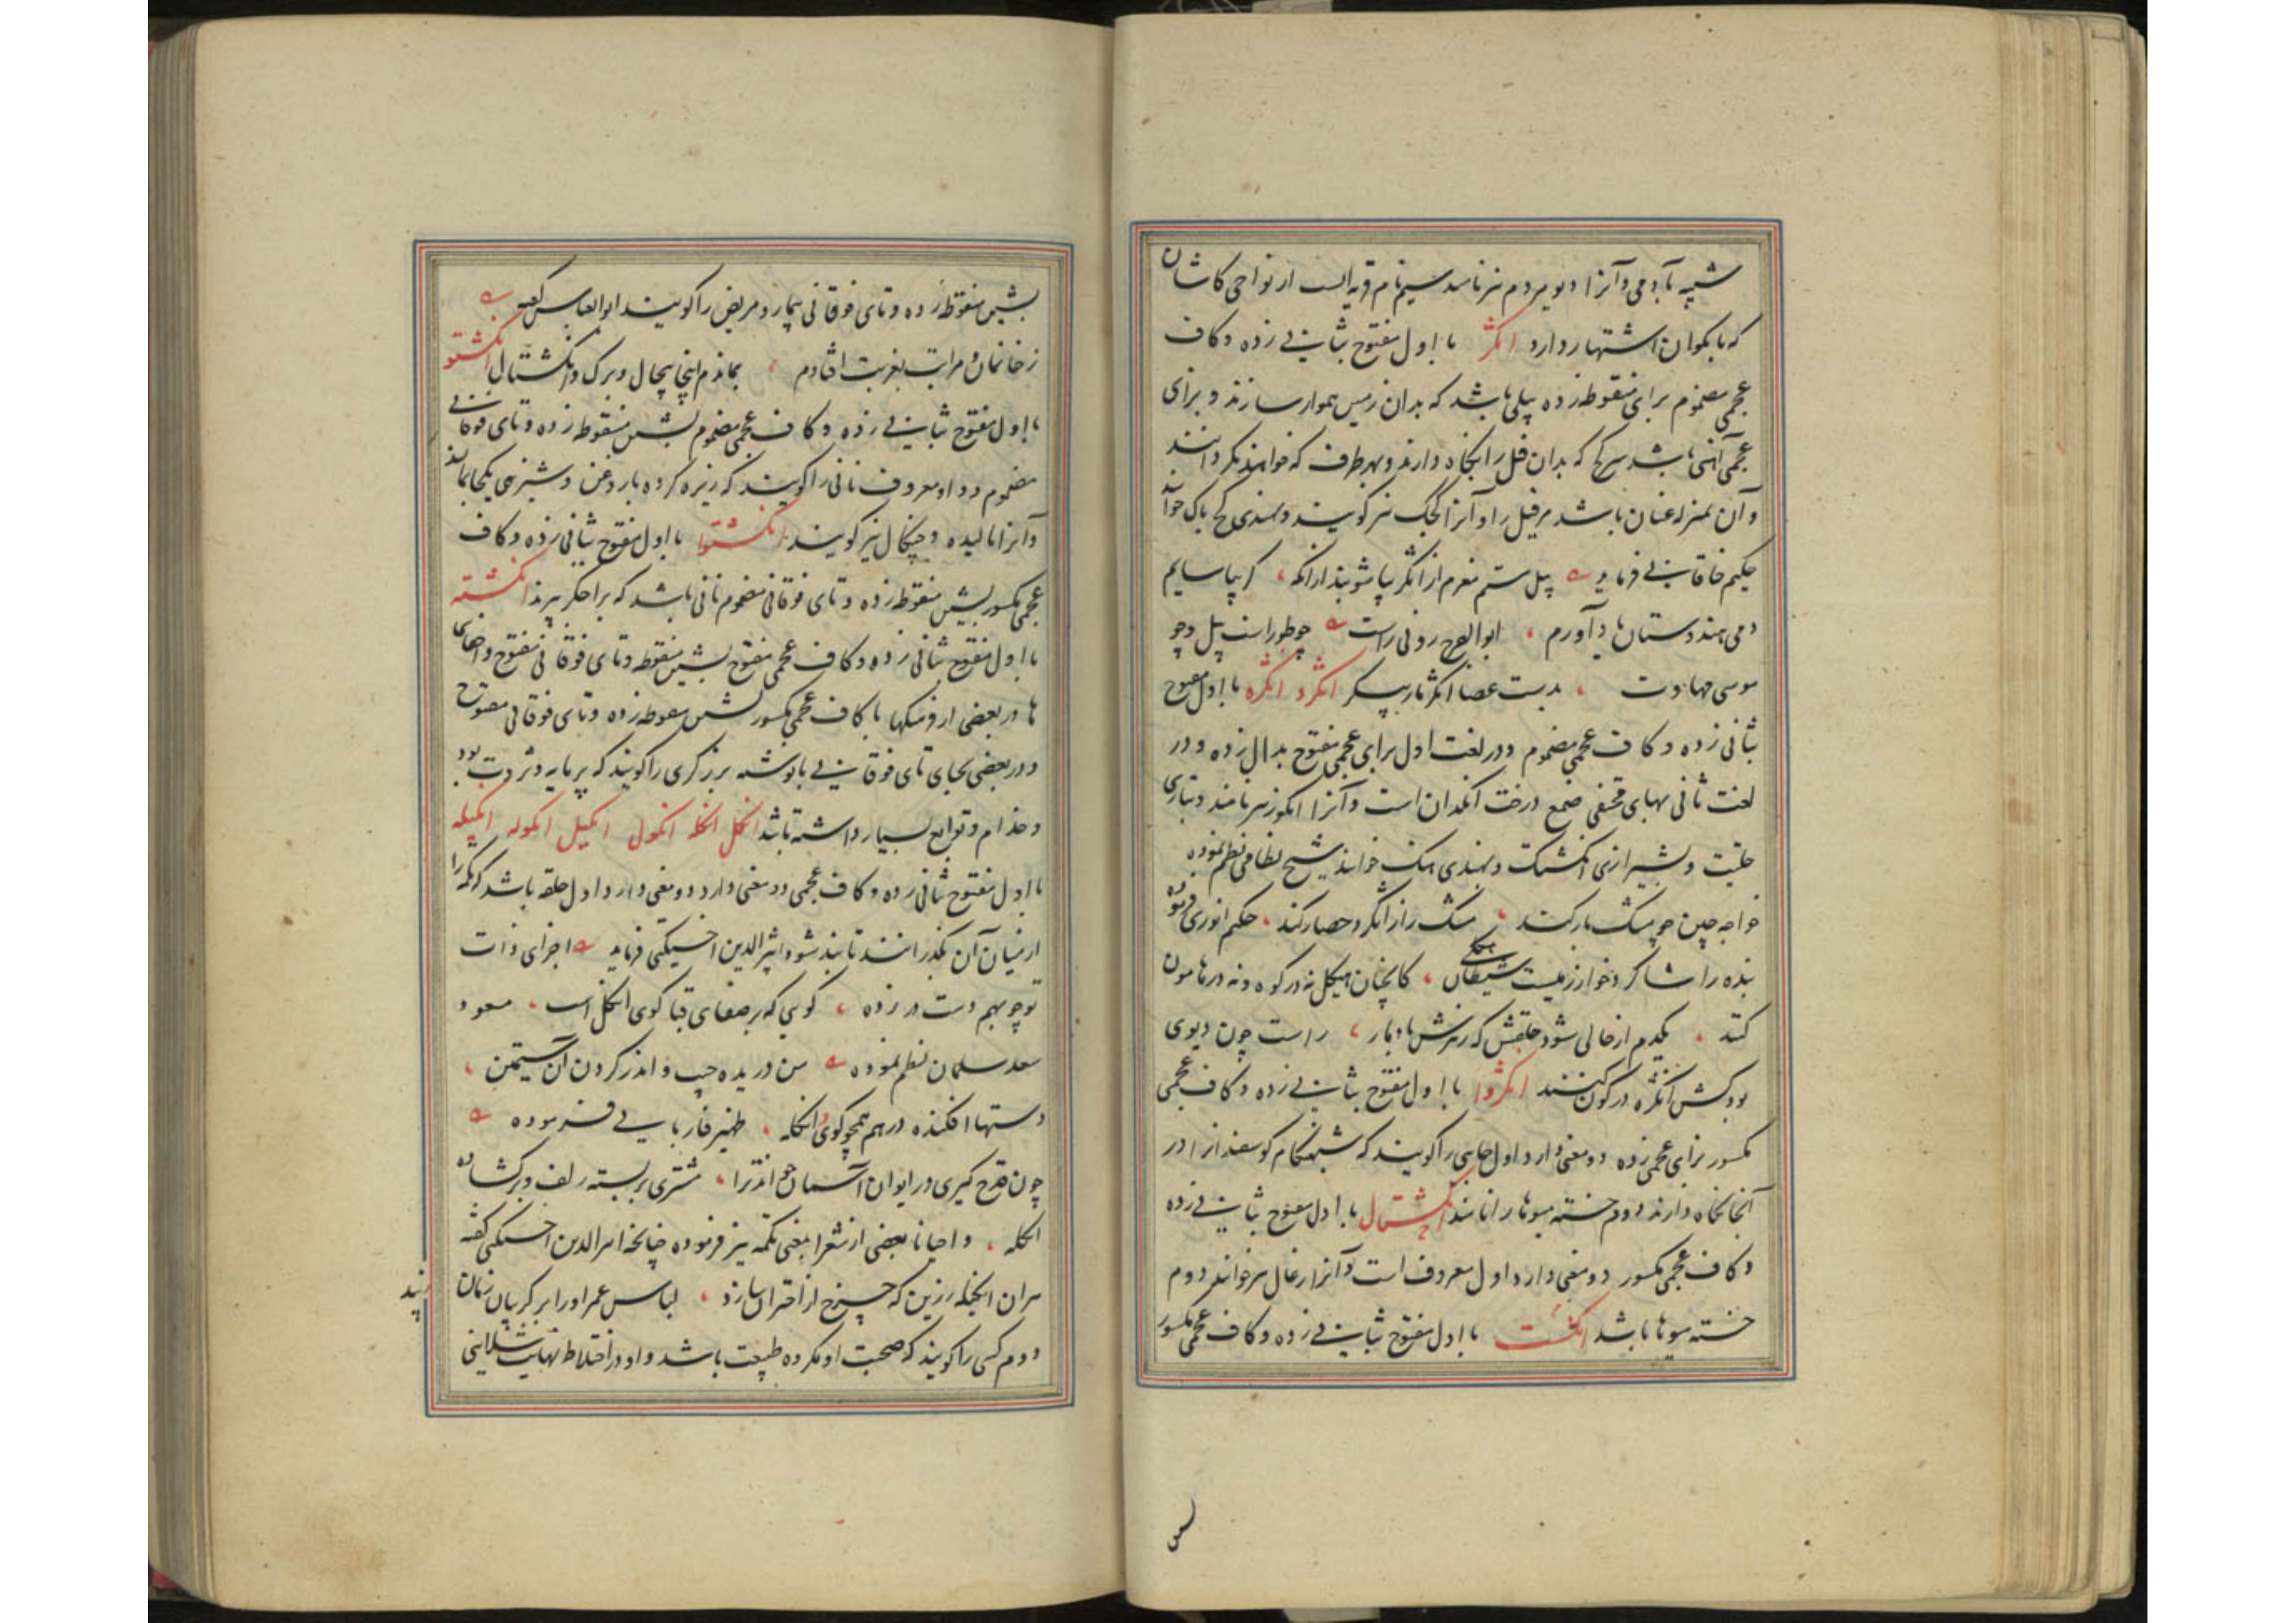 شبیه بآدمی و آنرا دیو مردم نیز نامند سیم نام قریه ایست از نواحی کاشان
که با بکوان اشتهار دارد انگژ با اول مفتوح بثانی زده و کاف
عجمی مضموم برای منقوطه زده بیلی باشد که بدان زمین هموار سازند و برای
عجمی آهنی باشد سرکج که بدان فیل را نگاه دارند و بهر طرف که خواهند بگردانند
و آن بمنزله عنان باشد مر فیل را و آنرا کجک نیز گویند و بهندی
حکیم خاقانی فرماید پیل مستم مغزم از انگژ بیاشوبید ازانکه گر بیاسایم
دمی هندوستان یاد آورم ابوالفرج رونی راست چو طوراست پیل و چو
موسی مهاوت بدست عصا انگژ مارپیکر انگژد انگژه با اول مفتوح
بثانی زده و کاف عجمی مضموم و در لغت اول برای عجمی مفتوح بدال زده و در
لغت ثانی بهای مختفی صمغ درخت انگدان است و آنرا انگوزه نیز نامند و بتازی
حلتیت و بشیرازی انگشتک و بهندی هنک خوانند شیخ نظامی نظم نموده
خواجه چین چو مشک بار کند مشک را ز انگژد حصار کند حکیم انوری فرموده
بنده را شاگرد خوارزمیست شیطان هیکلی کانچنان هیکل نه در کوه و نه در هامون
کنند یکدم ار خالی شود حلقش که بارش باد بار راست چون دیوی
بود کش انگژه در کون کنند انگژوا با اول مفتوح بثانی زده و کاف عجمی
مکسور برای عجمی زده دو معنی دارد اول جایی را گویند که شبهنگام گوسفندانرا در
آنجا نگاه دارند دوم خسته میوها را نامند انگشتال با اول مفتوح بثانی زده
و کاف عجمی مکسور دو معنی دارد اول معروف است و آنرا زغال نیز خوانند دوم
خسته میوها باشد انگشت با اول مفتوح بثانی زده و کاف عجمی مکسور
بشین منقوطه زده و تای فوقانی بیمار و مریض را گویند ابوالعباس گفته
ز خانمان و مراتب بغربت افتادم بماندم اینجا بیحال و برگ و انگشتال انگشتو
با اول مفتوح بثانی زده و کاف عجمی مضموم بشین منقوطه زده و تای فوقانی
مضموم و واو معروف نانی را گویند که ریزه کرده با روغن و شیرینی یکجا بمالند
و آنرا مالیده و چنگال نیز گویند انگشتوا با اول مفتوح ثانی زده و کاف
عجمی مکسور بشین منقوطه زده و تای فوقانی مضموم نانی باشد که بر اخگر بپزند انگشته
با اول مفتوح ثانی زده و کاف عجمی مفتوح بشین منقوطه و تای فوقانی مفتوح و اخفای
ها در بعضی از فرهنگها با کاف عجمی مکسور بشین منقوطه زده و تای فوقانی مفتوح
و در بعضی بجای تای فوقانی با نوشته برزگری را گویند که پر مایه و ثروت بود
و خدام و توابع بسیار داشته باشد انگل انگله انگول انگیل انگوله انگیله
با اول مفتوح ثانی زده و کاف عجمی دو معنی دارد اول حلقه باشد که تکمه را
از میان آن بگذرانند تا بند شود اثیرالدین اخسیکتی فرماید اجزای ذات
تو چو بهم دست در زده گویی که بر صفای قبا گوی انگل است مسعود
سعد سلمان نظم نموده من دریده جیب و اندر گردن آن سیمتن
دستها افکنده در هم همچو گوی انگله ظهیر فاریابی فرموده
چون قدح گیری در ایوان آسمان اندرا مشتری بر بسته زلف و برگشاده
انگله و احیانا بعضی از شعرا بمعنی تکمه نیز فرموده چنانچه اثیرالدین اخسیکتی گفته
بر ان انگیله زرین که چرخ از اختران سازد لباس عمر او را بر گریبان زمان
بند
دوم کسی را گویند که صحبت او مکروه طبیعت باشد و او در اختلاط نهایت